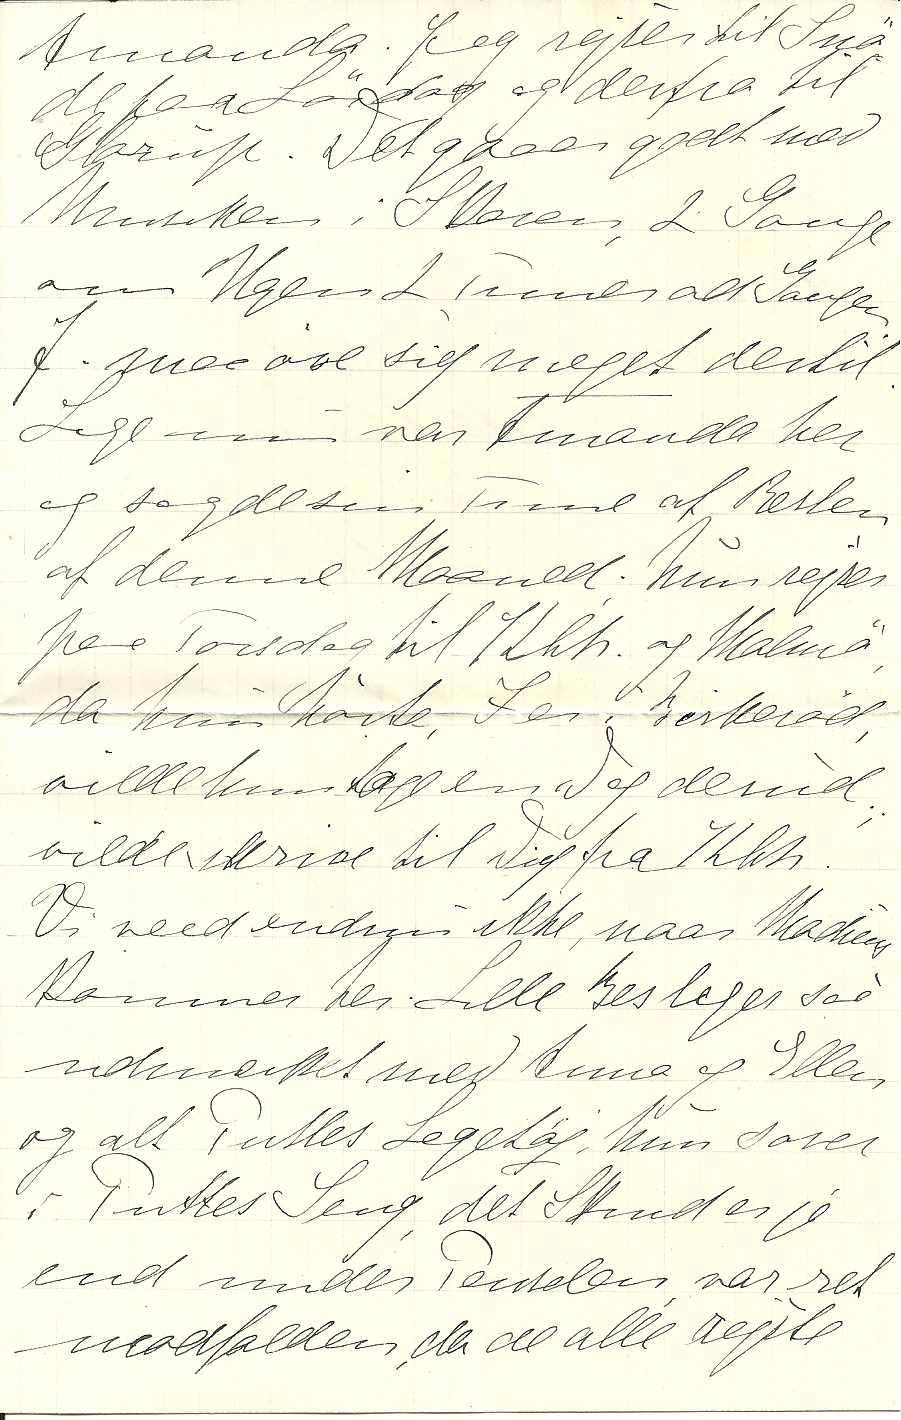 Amanda. Jeg rejser til Snö
de paa Lördag og derfra til
Glorup. Det gaaer godt med
Musiken i Skoven, 2 Gange
om Ugen 2 Timer ad Gangen
J. maa öve sig meget dertil.
Lige nu var Amanda her
og sagde sin Time af Resten
af denne Maaned. Hun rejser
paa Torsdag til Kbh. og Malmö,
da hun hörte, I er i Birkeröd,
vilde hun tage en Dag derud;
vilde skrive til Dig fra Kbh.
Vi veed endnu ikke, naar Madsens
kommer her. Lille Bes leger saa
udmærket med Anna og Ellen
og alt Puttes Legetøj, hun sover
i Puttes Seng, det Skind er jo
end under Penselen, var ret
modfalden, da de alle rejste